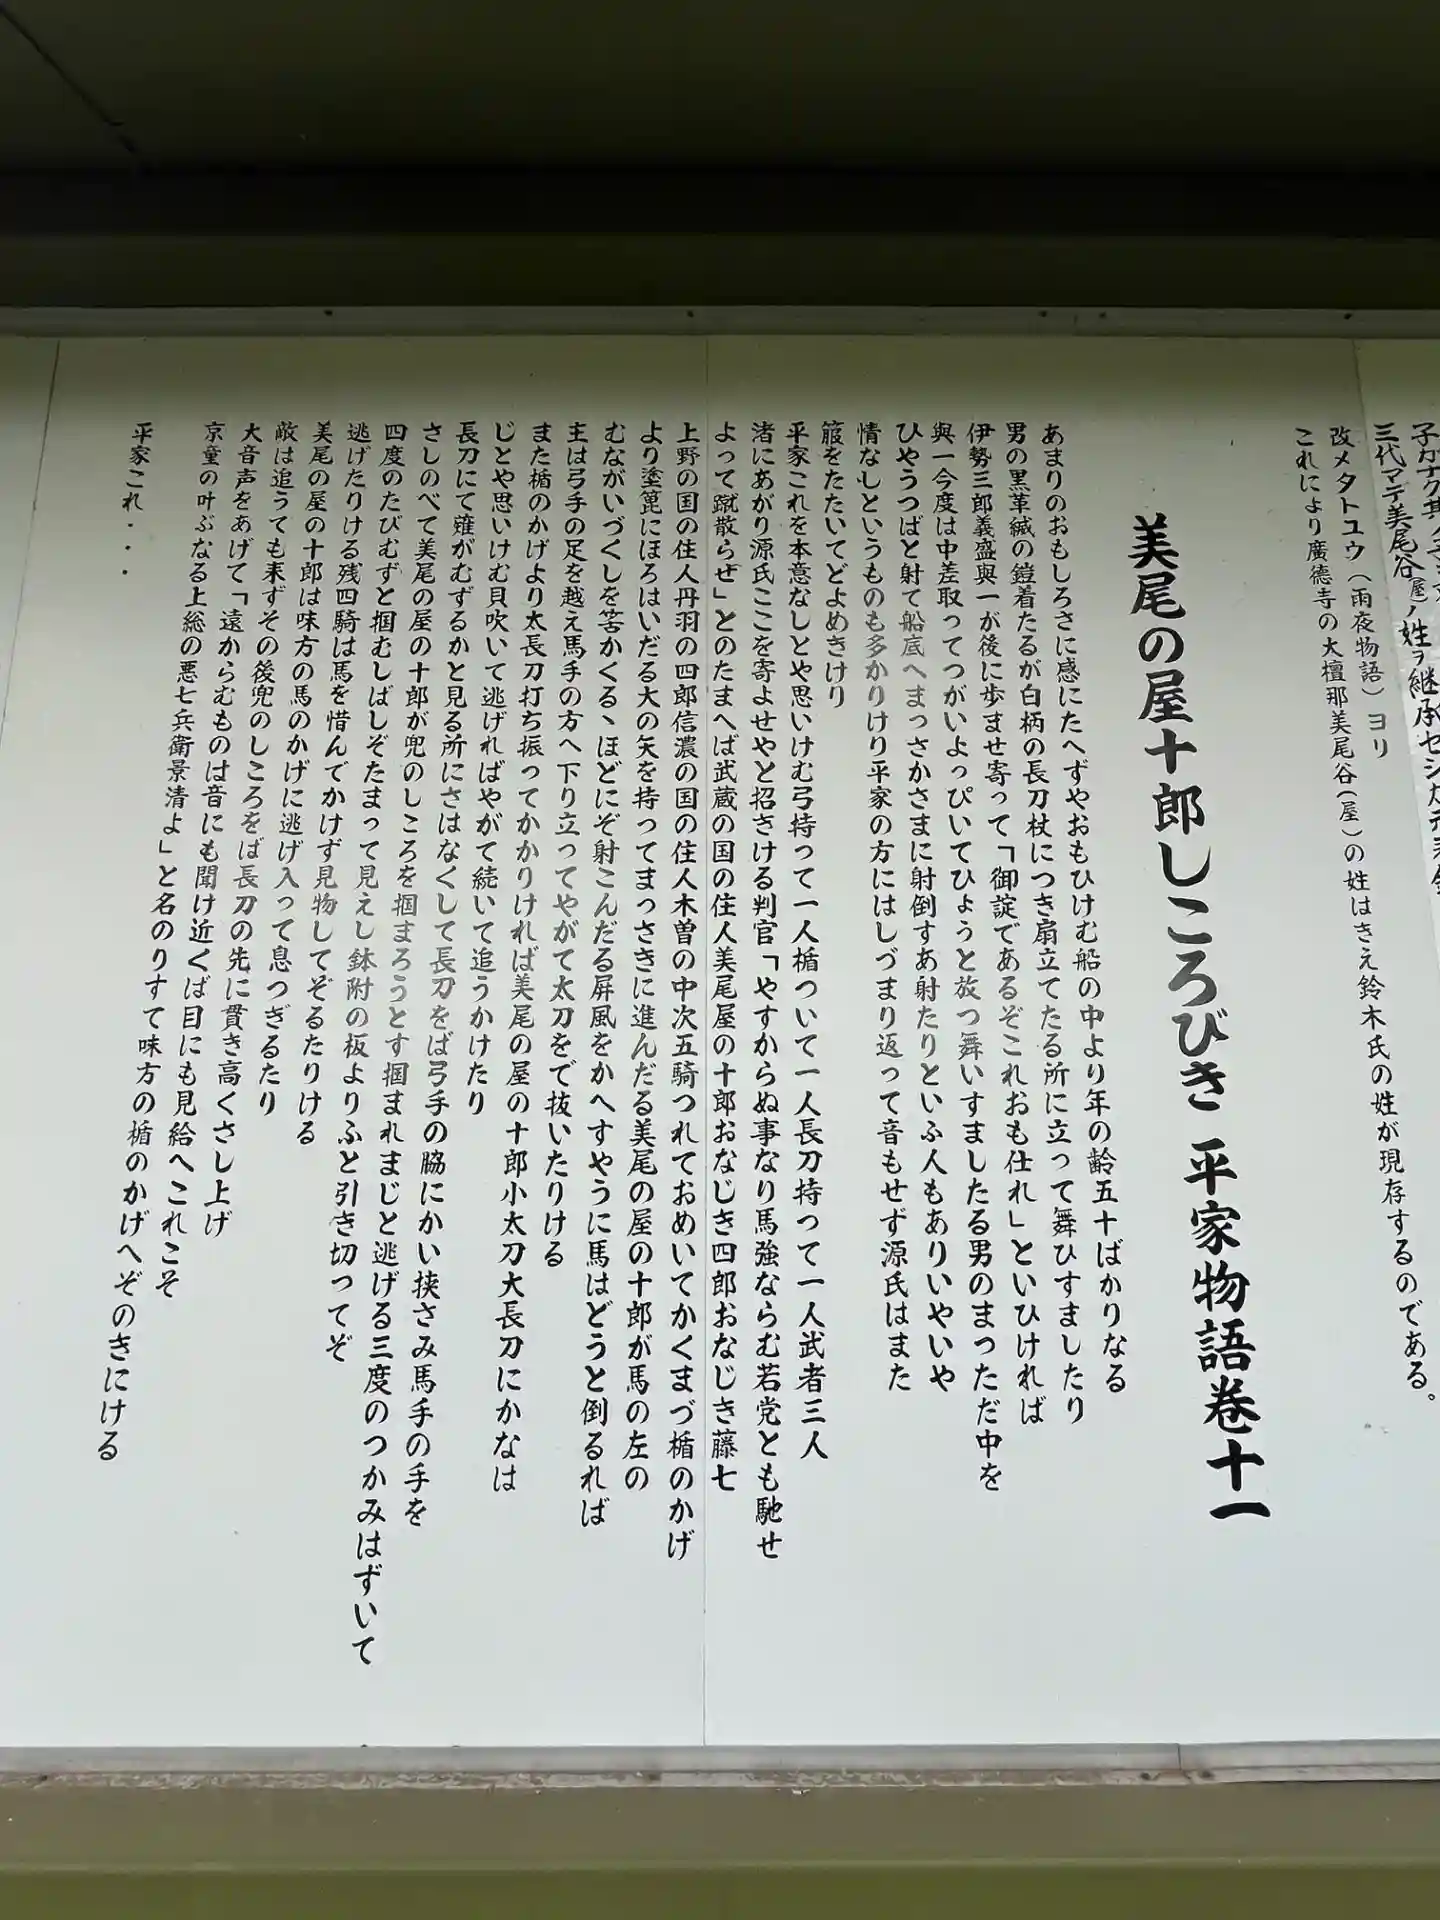 三代マデ美尾谷(屋)ノ姓ヲ継承セシガ
改メタトユウ(雨夜物語)ヨリ
これにより廣徳寺の大檀那美尾谷(屋)の姓はきえ鈴木氏の姓が現存するのである。
美尾の屋十郎しころびき 平家物語巻十一
あまりのおもしろさに感にたへずやおもひけむ船の中より年の齢五十ばかりなる
男の黒革縅の鎧着たるが白柄の長刀杖につき扇立てたる所に立って舞ひすましたり
伊勢三郎義盛與一が後に歩ませ寄って「御諚であるぞこれおも仕れ」といひければ
與一今度は中差取ってつがいよっぴいてひょうと放つ舞いすましたる男のまっただ中を
ひやうつばと射て船底へまっさかさまに射倒すあ射たりといふ人もありいやいや
情なしというものも多かりけり平家の方にはしづまり返って音もせず源氏はまた
箙をたたいてどよめきけり
平家これを本意なしとや思いけむ弓持って一人楯ついて一人長刀持って一人武者三人
渚にあがり源氏ここを寄よせやと招きける判官「やすからぬ事なり馬強ならむ若党とも馳せ
よって蹴散らせ」とのたまへば武蔵の国の住人美尾屋の十郎おなじき四郎おなじき藤七
上野の国の住人丹羽の四郎信濃の国の住人木曽の中次五騎つれておめいてかくまづ楯のかげ
より塗箆にほろはいだる大の矢を持ってまっさきに進んだる美尾の屋の十郎が馬の左の
むながいづくしを筈かくるヽほどにぞ射こんだる屏風をかへすやうに馬はどうと倒るれば
主は弓手の足を越え馬手の方へ下り立ってやがて太刀をで抜いたりける
また楯のかげより太長刀打ち振ってかかりければ美尾の屋の十郎小太刀大長刀にかなは
じとや思いけむ貝吹いて逃げればやがて続いて追うかけたり
長刀にて薙がむずるかと見る所にさはなくして長刀をば弓手の脇にかい挟さみ馬手の手を
さしのべて美尾の屋の十郎が兜のしころを掴まろうとす掴まれまじと逃げる三度のつかみはずいて
四度のたびむずと掴むしばしぞたまって見えし鉢附の板よりふと引き切ってぞ
逃げたりける残四騎は馬を惜んでかけず見物してぞるたりける
美尾の屋の十郎は味方の馬のかげに逃げ入って息つぎるたり
敵は追うても来ずその後兜のしころをば長刀の先に貫き高くさし上げ
大音声をあげて「遠からむものは音にも聞け近くば目にも見給へこれこそ
京童の叶ぶなる上総の悪七兵衛景清よ」と名のりすて味方の楯のかげへぞのきにける
平家これ・・・